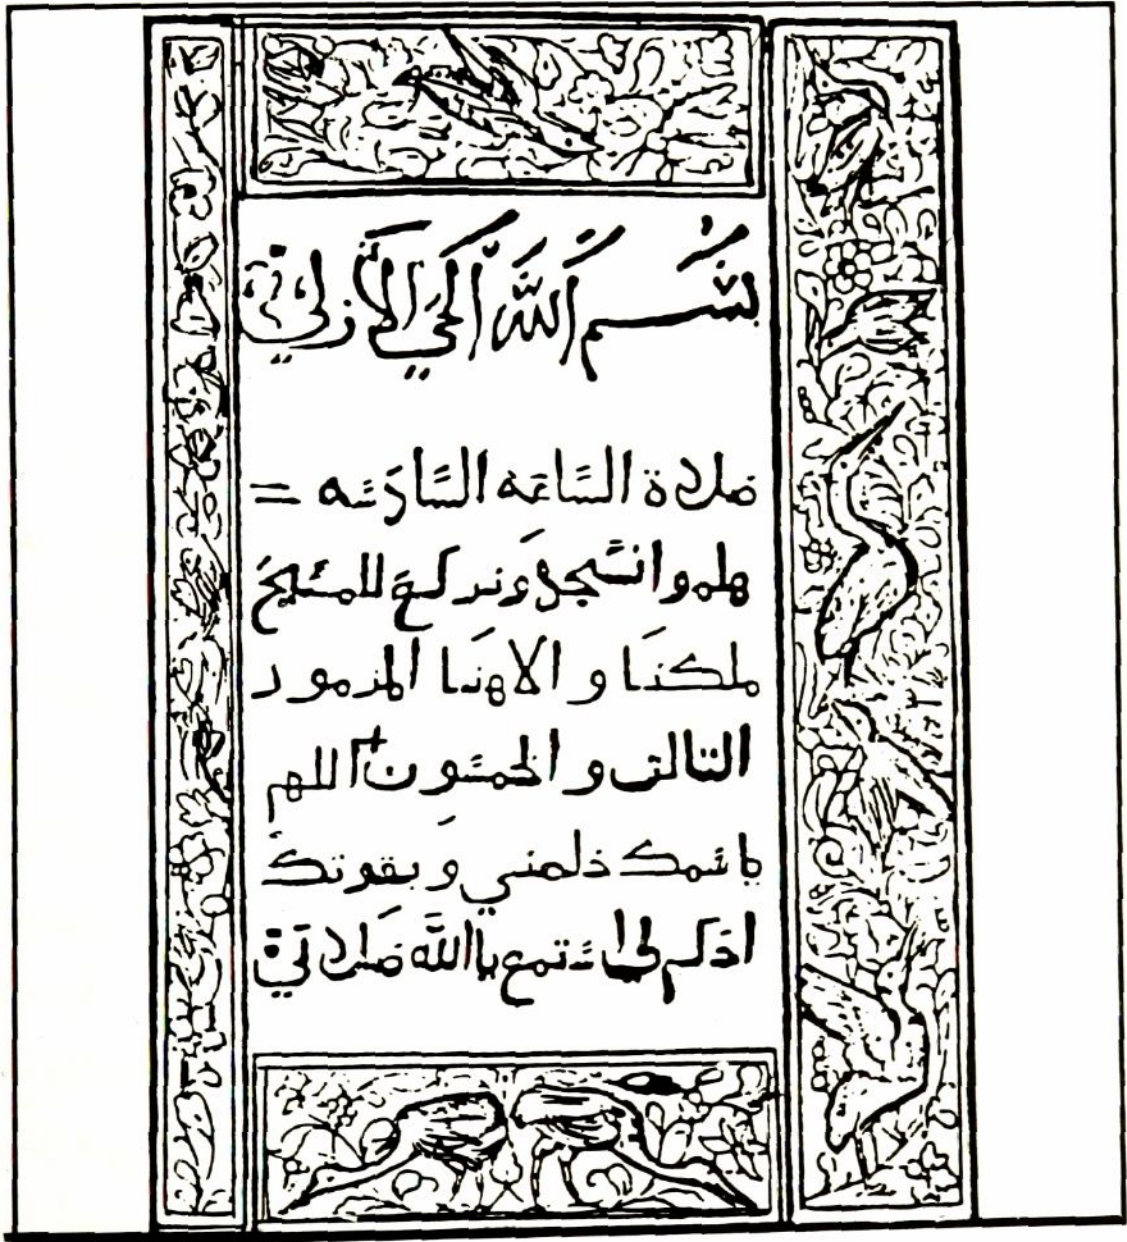 بسم الله الحي الازلي
صلاة الساعه السادسه =
هلموا نسجد و نركع للمسيح
ملكنا و الاهنا المزمور
التالت و الخمسون + اللهم
باسمك خلصني و بقوتك
احكم لي استمع يا الله صلاتي